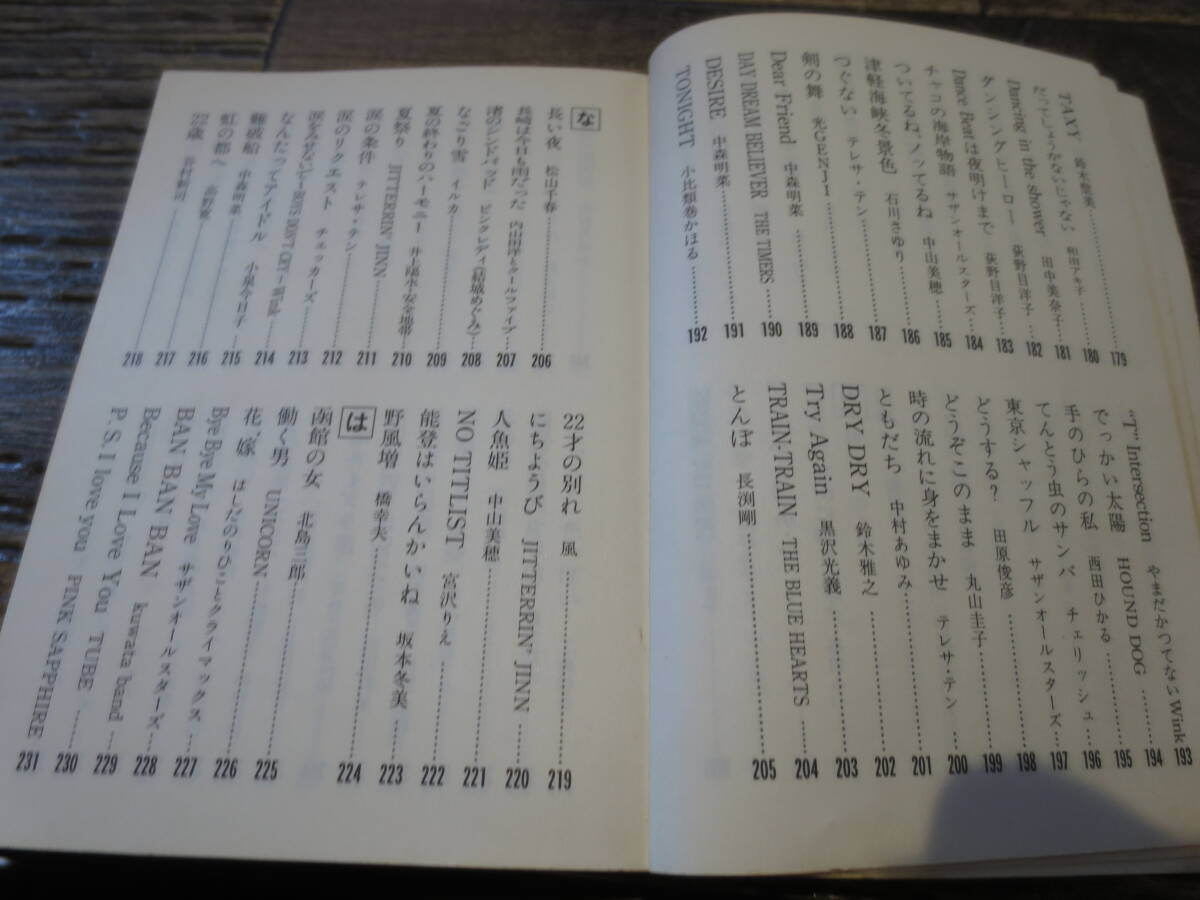 TAXY 鈴木聖美 179
だってしょうがないじゃない 和田アキ子 180
Dancing in the shower 田中美奈子 181
ダンシングヒーロー 荻野目洋子 182
Dance Beatは夜明けまで 荻野目洋子 183
チャコの海岸物語 サザンオールスターズ 184
ついてるねノッてるね 中山美穂 185
津軽海峡冬景色 石川さゆり 186
つぐない テレサ・テン 187
剣の舞 光GENJI 188
Dear Friend 中森明菜 189
DAY DREAM BELIEVER THE TIMERS 190
DESIRE 中森明菜 191
TONIGHT 小比類巻かほる 192
"T" Intersection やまだかつてないWink 193
でっかい太陽 HOUND DOG 194
手のひらの私 西田ひかる 195
てんとう虫のサンバ チェリッシュ 196
東京シャッフル サザンオールスターズ 197
どうする? 田原俊彦 198
どうぞこのまま 丸山圭子 199
時の流れに身をまかせ テレサ・テン 200
ともだち 中村あゆみ 201
DRY DRY 鈴木雅之 202
Try Again 黒沢光義 203
TRAIN-TRAIN THE BLUE HEARTS 204
とんぼ 長渕剛 205
な
長い夜 松山千春 206
長崎は今日も雨だった 内山田洋とクールファイブ 207
渚のシンドバッド ピンクレディ(結城めぐみ) 208
なごり雪 イルカ 209
夏の終わりのハーモニー 井上陽水・安全地帯 210
夏祭り JITTERIN' JINN 211
涙の条件 テレサ・テン 212
涙のリクエスト チェッカーズ 213
涙をみせないで〜BOYS DON'T CRY〜 Wink 214
なんたってアイドル 小泉今日子 215
難破船 中森明菜 216
虹の都へ 高野寛 217
22歳 谷村新司 218
22才の別れ 風 219
にちようび JITTERIN' JINN 220
人魚姫 中山美穂 221
NO TITLIST 宮沢りえ 222
能登はいらんかいね 坂本冬美 223
野風増 橋幸夫 224
は
函館の女 北島三郎 225
働く男 UNICORN 226
花嫁 はしだのりひことクライマックス 227
Bye Bye My Love サザンオールスターズ 228
BAN BAN BAN kuwata band 229
Because I Love You TUBE 230
P.S.I love you PINK SAPPHIRE 231